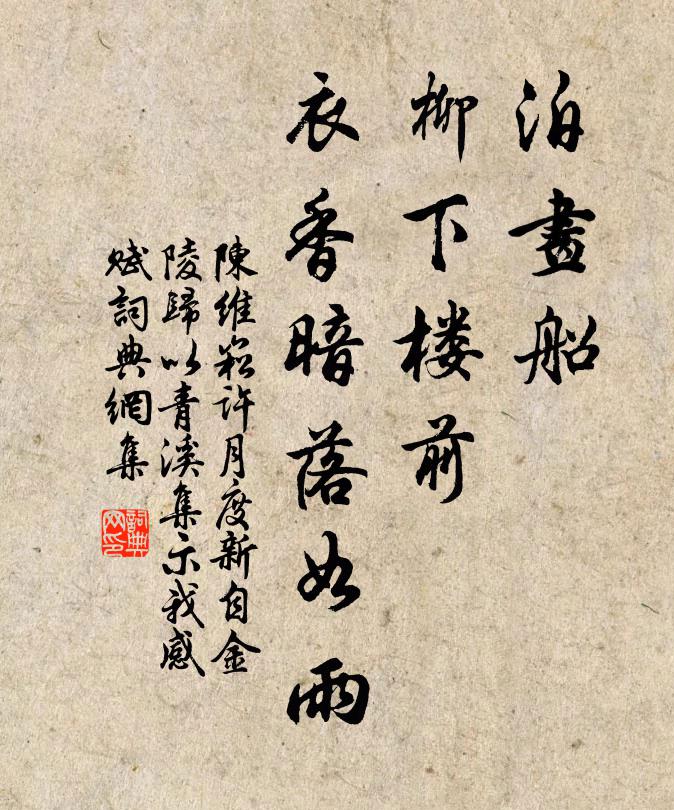 泊畫船
柳下楼前
衣香暗落如雨
陳維崧許月度新自金
陵歸以青溪集示我感
賦詞典網集
詞典
网印